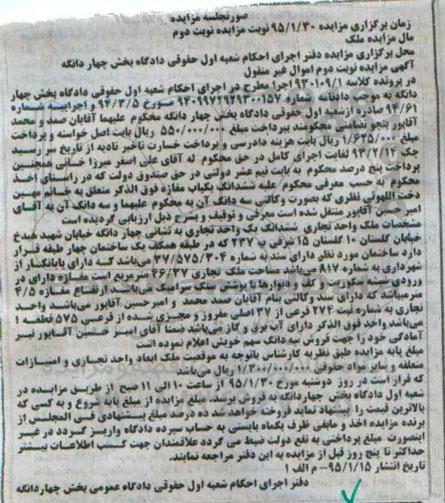 صورتجلسه مزایده
زمان برگزاری مزایده ۹۵/۱/۳۰ نوبت مزایده نوبت دوم
مال مزایده ملک
محل برگزاری مزایده دفتر اجرای احکام شعبه اول حقوقی دادگاه بخش چهار دانگه
آگهی مزایده نوبت دوم اموال غیر منقول
در پرونده کلاسه ۹۳۰۱۰۹/۱ اجرا مطرح در اجرای احکام شعبه اول حقوقی دادگاه بخش چهار
دانگه به موجب دادنامه شماره ۹۴۰۹۹۷۲۲۹۳۰۰۱۵۷ مورخ ۹۴/۳/۵ و اجراییه شماره
۹۴/۶۱ صادره ازشعبه اول حقوقی دادگاه چهار دانگه محکوم علیهما آقایان صمد و محمد
آقاپور پنجو تضامنی محکومند بپرداخت مبلغ ۵۵۰/۰۰۰/۰۰۰ ریال بابت اصل خواسته و پرداخت
۱/۶۳۵/۰۰۰ ریال بابت هزینه دادرسی و پرداخت خسارت تاخیر تادیه از تاریخ سر رسید
چک ۹۳/۲/۱۲ لغایت اجرای کامل در حق محکوم له آقای علی اصغر میرزا خسانی همچنین
پرداخت پنج درصد محکوم به بابت نیم عشر دولتی در حق صندوق دولت که در راستای اخذ
محکوم به حسب معرفی محکوم علیه ششدانگ یکباب مغازه فوق الذکر متعلق به خانم مهین
دخت اللهوئی نظری که بصورت وکالتی سه دانگ آن به محکوم علیهما و سه دانگ آن به آقای
امیر حسین آقاپور منتقل شده است معرفی و توقیف و بشرح ذیل ارزیابی گردیده است
مشخصات ملک واحد تجاری ششدانگ یک واحد تجاری به نشانی چهار دانگه خیابان شهید هیدخ
خیابان گلستان ۱۰ گلستان ۱۵ شرقی پ ۲۳۷ که در طبقه همکف یک ساختمان چهار طبقه قرار
دارد ساختمان مورد نظر دارای سند به شماره ۳۷/۵۷۵/۳۰۴ می‌باشد کسه دارای پایانکار از
شهرداری به شماره ۸۱۷ می‌باشد مساحت ملک تجاری ۲۶/۳۷ مترمربع است مغازه دارای در
ورودی شیشه سکوریت و کف و دیوارها با پوشش سنگ سرامیک می‌باشد. ارتفاع مغازه ۴/۵
متر میباشد که دارای سند وکالتی بنام آقایان صمد محمد و امیرحسین آقاپور می‌باشند واحد
تجاری به شماره ثبت ۲۷۴ فرعی از ۳۷ اصلی مفروز و مجزی شده از فرعی ۵۷۵ قطعه ۱
می‌باشد واحد فوق الذکر دارای آب برق و گاز می‌باشد ضمنا آقای امیر حسین آقاپور نیز
آمادگی خود را جهت فروش سه دانگ سهم خویش اعلام نموده است
مبلغ پایه مزایده طبق نظریه کارشناس باتوجه به موقعیت ملک ابعاد واحد تجاری و امتیازات
متعلقه و سایر مواد حقوقی ۱/۳۰۰/۰۰۰/۰۰۰ ریال می‌باشد
که قرار است در روز دوشنبه مورخ ۹۵/۱/۳۰ از ساعت ۱۰ الی ۱۱ صبح از طریق مزایده در
شعبه اول دادگاه حقوقی چهاردانگه به فروش برسد. مبلغ مزایده از مبلغ پایه شروع و به کسی که
بالاترین قیمت را پیشنهاد نماید فروخته خواهد شد ده درصد مبلغ پیشنهادی فی المجلس از
برنده مزایده اخذ و مابقی ظرف یکماه بایستی به حساب سپرده دادگاه واریز گردد در غیر
اینصورت مبلغ پرداختی به نفع دولت ضبط می گردد علاقمندان جهت کسب اطلاعات بیشتر
حداکثر تا پنج روز قبل از مزایده به این دفتر مراجعه نمایند.
تاریخ انتشار ۹۵/۱/۱۵- م الف ۱
دفتر اجرای احکام شعبه اول حقوقی دادگاه عمومی بخش چهاردانگه